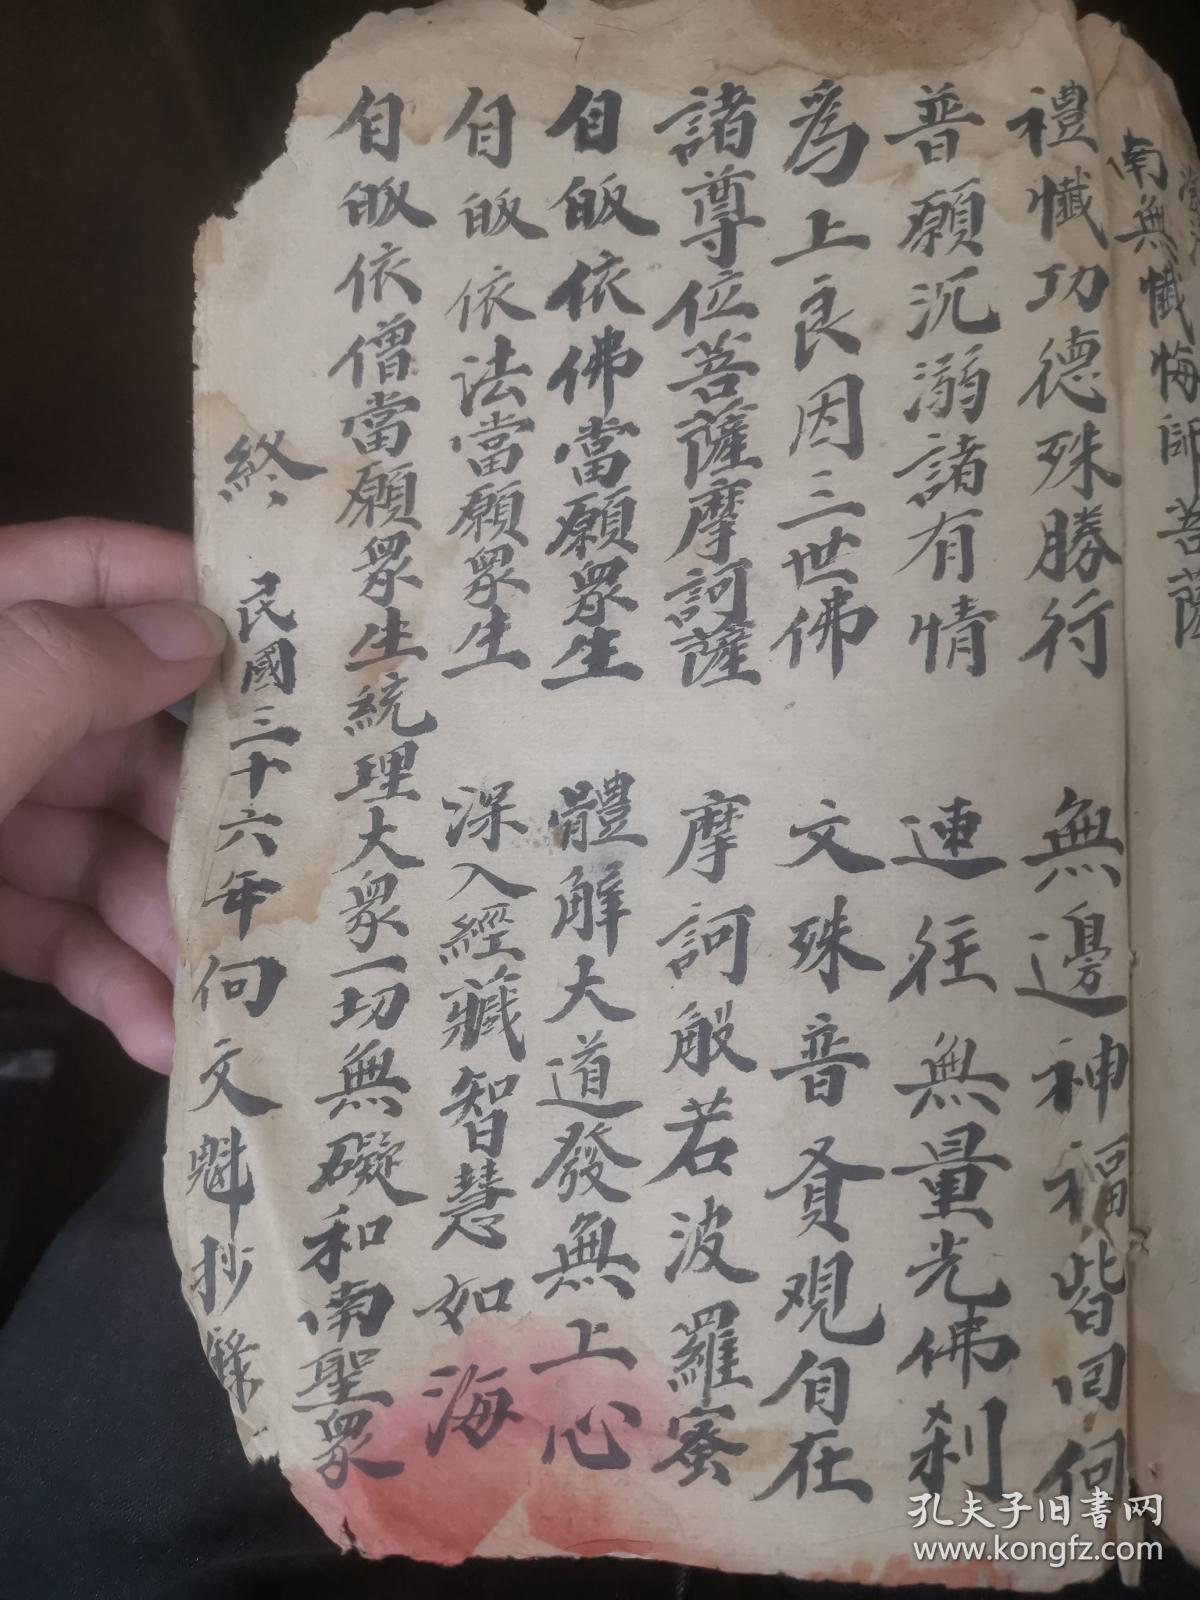 南無懺悔師菩薩
禮懺功德殊勝行 無邊神福皆回向
普願沉溺諸有情 速往無量光佛刹
爲上良因三世佛 文殊普貟観自在
諸尊位菩薩摩訶薩 摩訶般若波羅蜜
自皈依佛當願眾生 體解大道發無上心
自皈依法當願眾生 深入經藏智慧如海
自皈依僧當願眾生統理大眾一切無礙和南聖眾
終 民國三十六年何文魁抄錄
孔夫子旧書网
www.kongfz.com